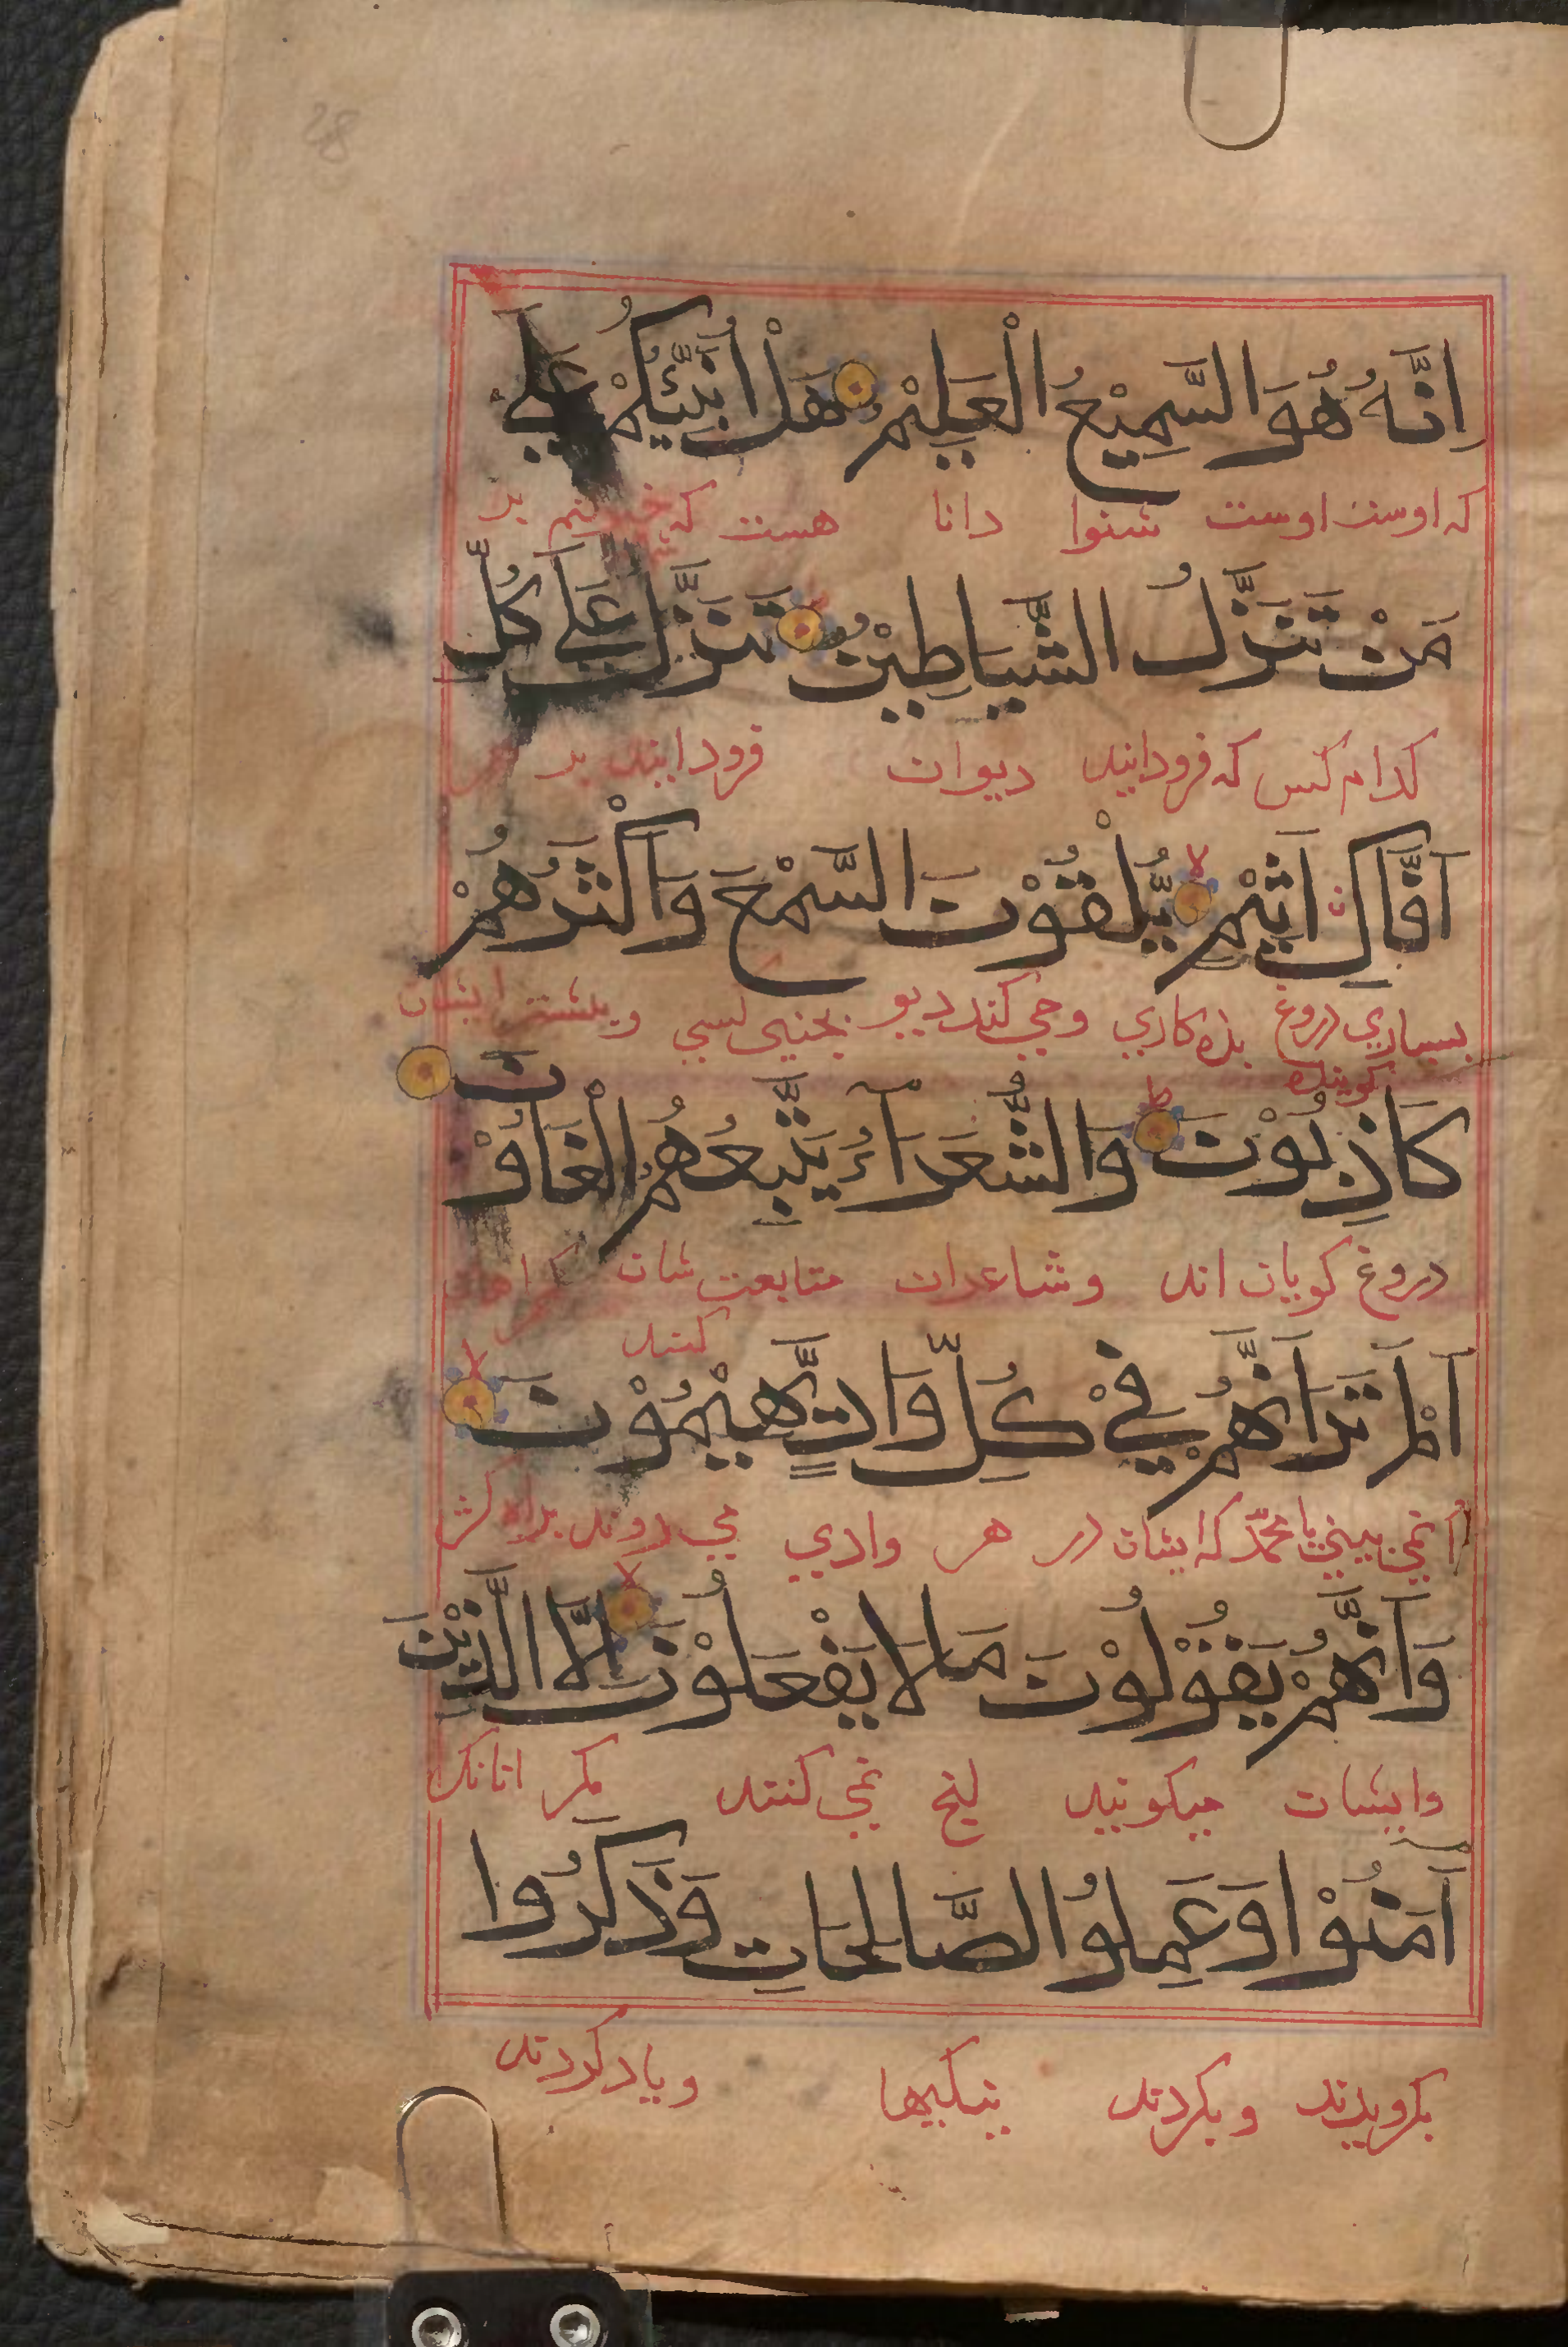 اِنَّهُ هُوَ السَّمِيْعُ الْعَلِيْمُ هَلْ اُنَبِّئُكُمْ عَلٰي
كه اوست اوست شنوا دانا هست كه بر
مَنْ تَنَزَّلُ الشَّيَاطِيْنُ تَنَزَّلُ عَلٰي كُلِّ
كدام كس كه فرودايند ديوان فرودايند بر
اَفَّاكٍ اَثِيْمٍ يُّلْقُوْنَ السَّمْعَ وَاَكْثَرُهُمْ
بسياري دروغ بزه كاري و مي كند ديو و بيشتر ايشان
كوينده
نَ
كَاذِبُوْنَ وَالشُّعَرَآءُ يَتَّبِعُهُمُ الْغَاوُ
دروغ كويان اند و شاعران متابعت شان
كنند
اَلَمْ تَرَ اَنَّهُمْ فِيْ كُلِّ وَادٍ يَّهِيْمُوْنَ
ا نمي بيني يا محمّد كه ايشان در هر وادي مي روند براه كژ
وَاَنَّهُمْ يَقُوْلُوْنَ مَا لَا يَفْعَلُوْنَ اِلَّا الَّذِيْنَ
وايشان ميكويند نمي كنند مكر انانك
اٰمَنُوْا وَعَمِلُوا الصَّالِحَاتِ وَذَكَرُوا
بكرويدند و بكردند نيكيها و ياد كردند